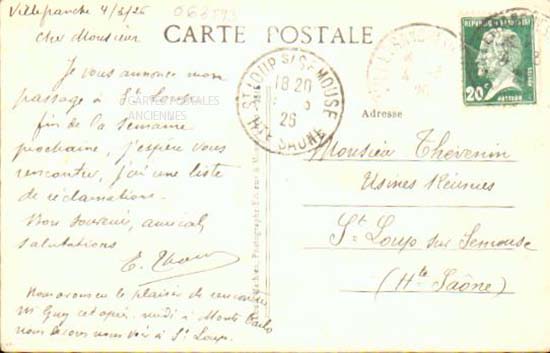 Villefranche 4/3/26
063573
Cher Monsieur
CARTE POSTALE
Je vous annonce mon
passage à St Loup
fin de la semaine
prochaine, j'espère vous
rencontrer, j'ai une liste
de réclamations.
Bon souvenir, amicales
salutations
E.
Nous avons eu le plaisir de rencontrer
Mr Guy cet après midi à Monte Carlo
nous à St Loup.
CARTES POSTALES
ANCIENNES
ST LOUP S/SEMOUSE
18 20
26
HTE SAONE
REPUBLIQUE FRANCAISE
20c
PASTEUR
POSTES
Adresse
Monsieur Thévenin
Usines Réunies
St Loup sur Semouse
(Hte Saône)